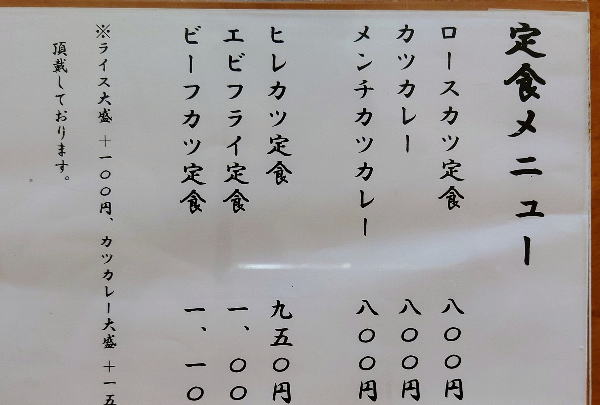 定食メニュー
ロースカツ定食 八〇〇円
カツカレー 八〇〇円
メンチカツカレー 八〇〇円
ヒレカツ定食 九五〇円
エビフライ定食 一、〇〇
ビーフカツ定食 一、一〇
※ライス大盛 +一〇〇円、カツカレー大盛 +一五
頂戴しております。